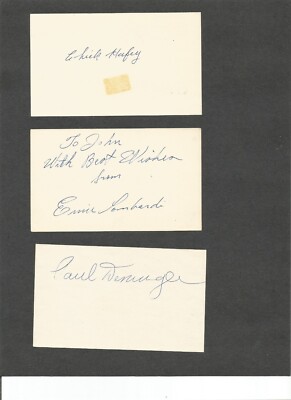 Chick Hafey
To John
With Best Wishes
from
Ernie Lombardi
Paul Derringer